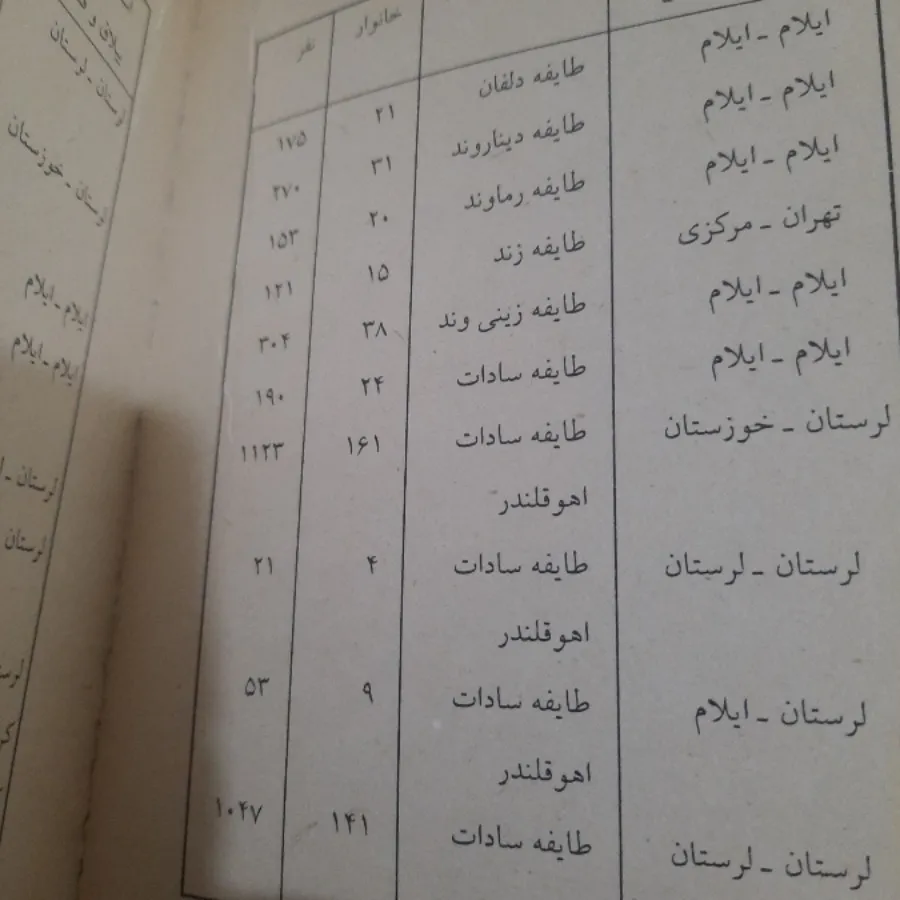 خانوار نفر
ایلام ـ ایلام طایفه دلفان ۲۱ ۱۷۵
ایلام ـ ایلام طایفه دیناروند ۳۱ ۲۷۰
ایلام ـ ایلام طایفه رماوند ۲۰ ۱۵۳
تهران ـ مرکزی طایفه زند ۱۵ ۱۲۱
ایلام ـ ایلام طایفه زینی وند ۳۸ ۳۰۴
ایلام ـ ایلام طایفه سادات ۲۴ ۱۹۰
لرستان ـ خوزستان طایفه سادات ۱۶۱ ۱۱۲۳
اهو قلندر
لرستان ـ لرستان طایفه سادات ۴ ۲۱
اهو قلندر
لرستان ـ ایلام طایفه سادات ۹ ۵۳
اهو قلندر
لرستان ـ لرستان طایفه سادات ۱۴۱ ۱۰۴۷
لرستان ـ لرستان
لرستان ـ خوزستان
ایلام ـ ایلام
ایلام ـ ایلام
لرستان ـ
لرستان